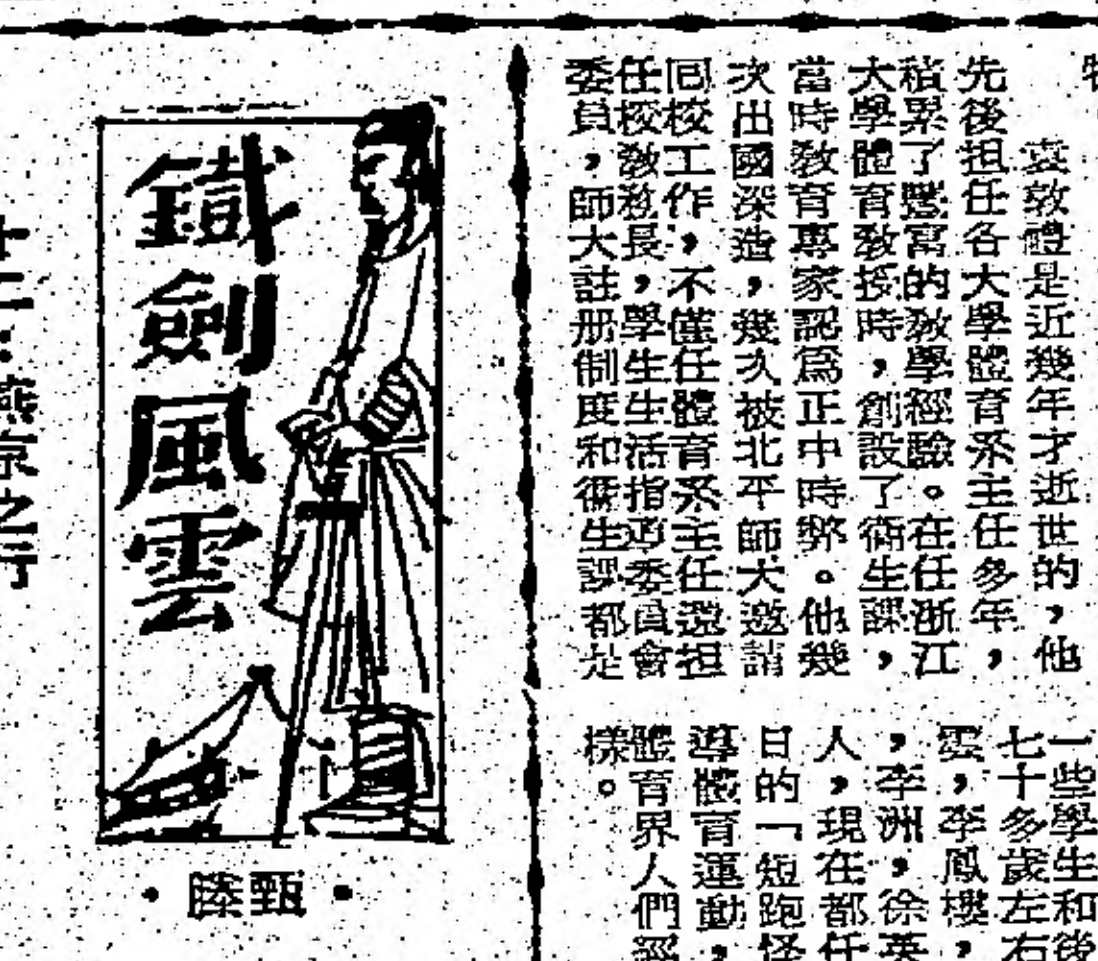 袁敦禮是近幾年才逝世的，他
先後担任各大學體育系主任多年，
積累了豐富的教學經驗。在任浙江
大學體育教授時，創設了衛生課，
當時教育專家認爲正中時弊。他幾
次出國深造，幾次被北平師大邀請
回校工作，不僅任體育系主任還担
任校教務長，學生生活指導委員會
委員，師大註册制度和衞生課都是
一些學生和後
七十多歲左右
雲，李鳳樓，
，李洲，徐英
人，現在都任
日的「短跑怪
導體育運動，
體育界人們
樣。
鐵劍風雲
•甄滕•
十二：燕京之行